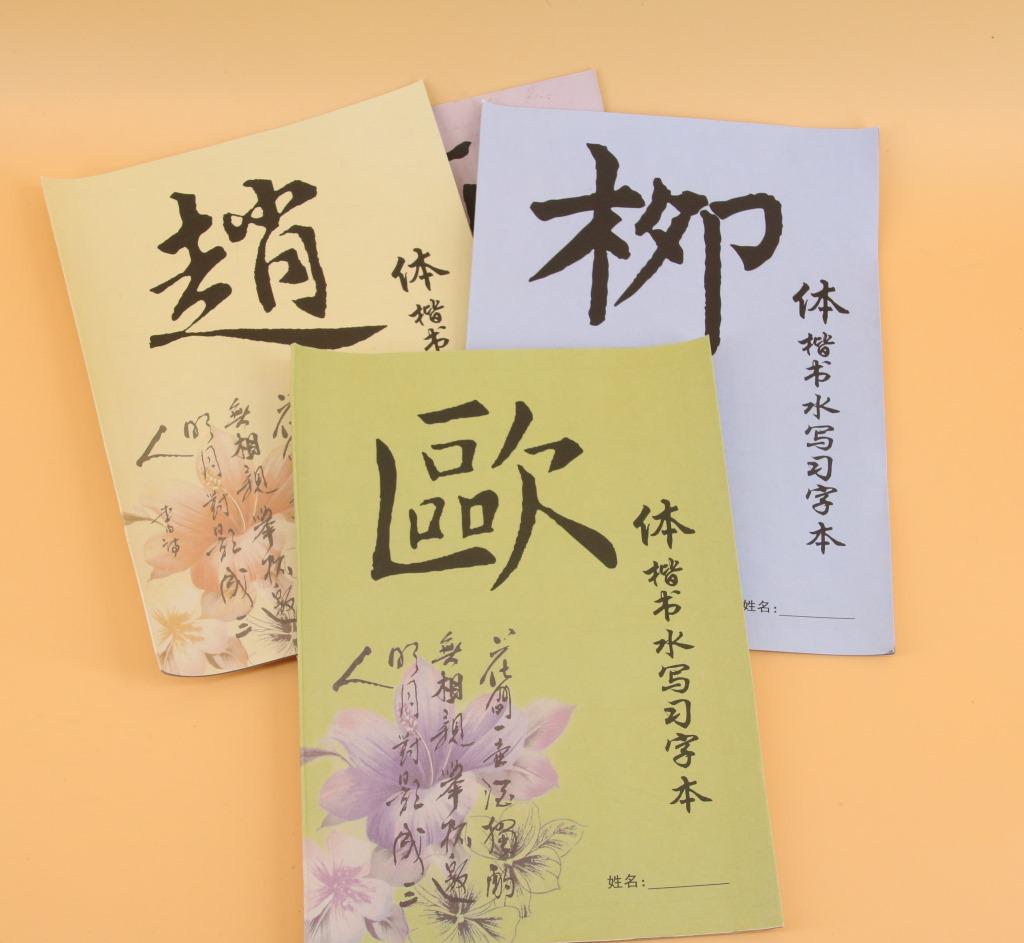 趙
体楷书
花
無相親舉杯邀
明月對影成三
人
李白詩
柳
体楷书水写习字本
姓名:
歐
体楷书水写习字本
花間一壶酒獨酌
無相親舉杯邀
明月對影成三
人
姓名: